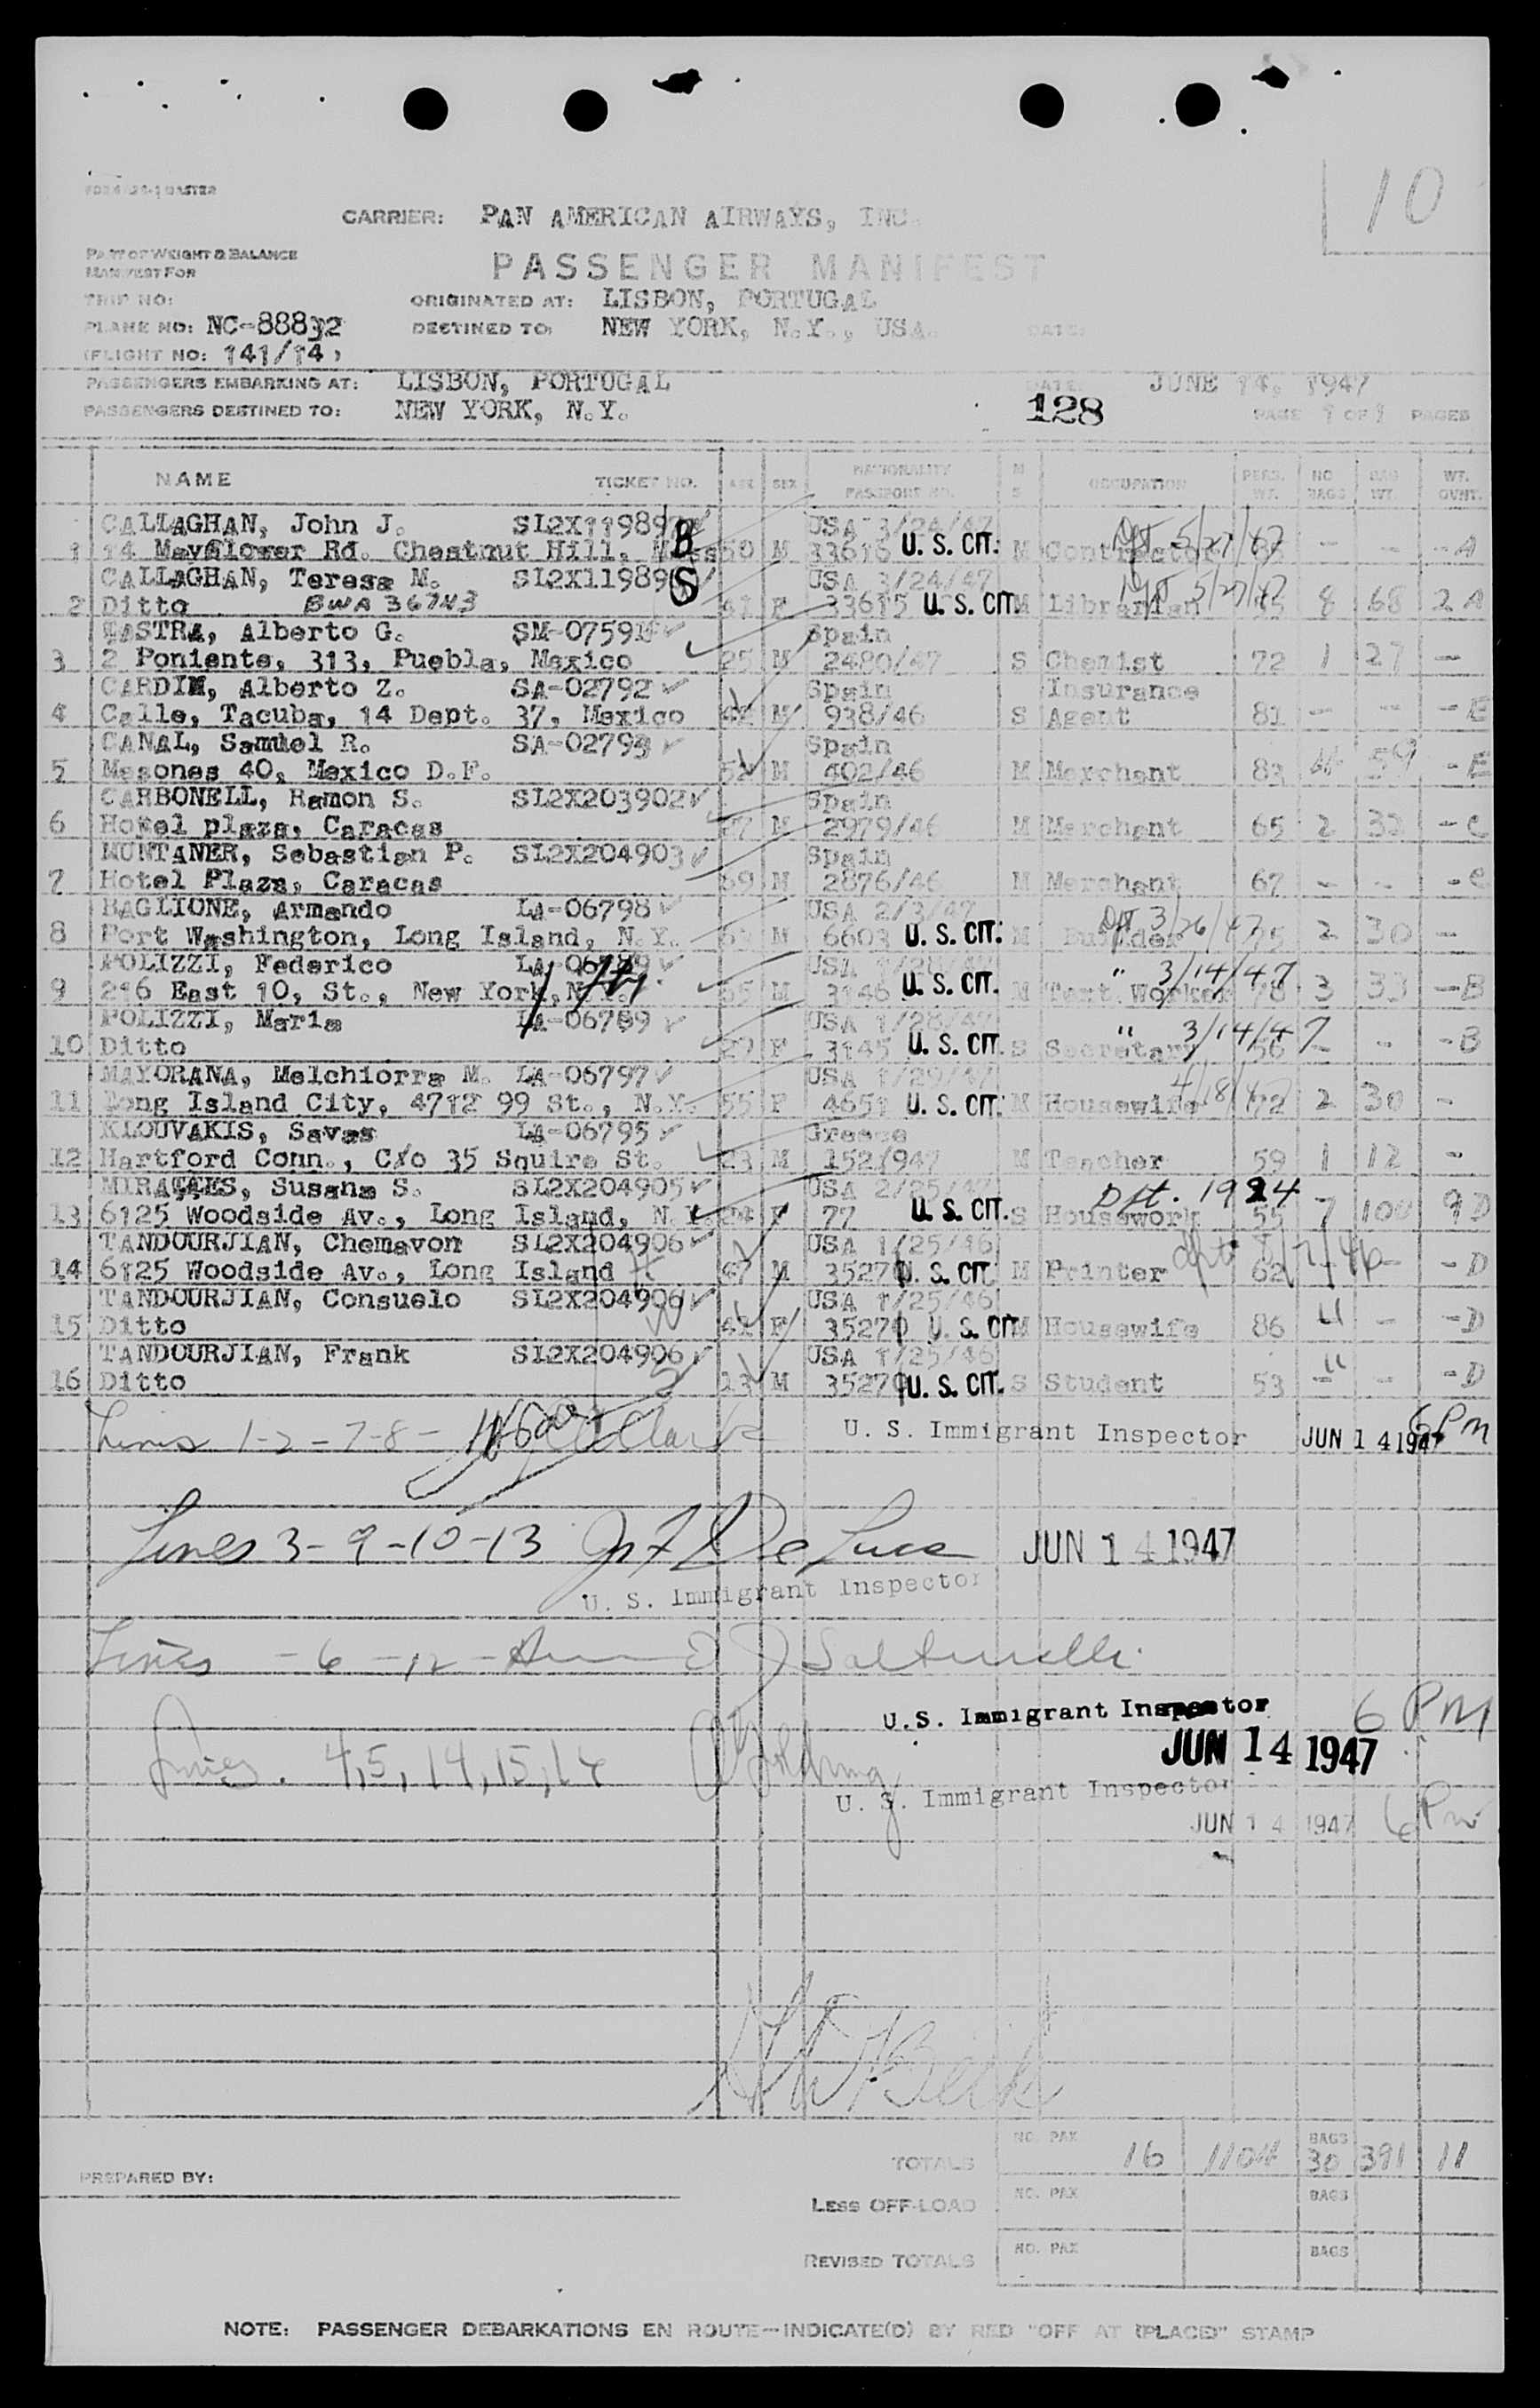 10
CARRIER: PAN AMERICAN AIRWAYS, INC.
PART OF WEIGHT & BALANCE
MANIFEST FOR
PASSENGER MANIFEST
TRIP NO:
ORIGINATED AT: LISBON, PORTUGAL
PLANE NO: NC-88832
DESTINED TO: NEW YORK, N.Y., USA. DATE:
(FLIGHT NO: 141/14)
PASSENGERS EMBARKING AT: LISBON, PORTUGAL DATE: JUNE 14, 1947
PASSENGERS DESTINED TO: NEW YORK, N.Y. 128 PAGE 1 OF 1 PAGES
NAME TICKET NO. AGE SEX NATIONALITY PASSPORT NO. M S OCCUPATION PERS. WT. NO BAGS BAG WT. WT. OVWT.
CALLAGHAN, John J. USA 3/24/47 5/27/47
1 14 Mayflower Rd. Chestnut Hill, Mass 50 M 33616 U. S. CIT. M Contractor - - - A
CALLAGHAN, Teresa M. USA 3/24/47 5/27/47
2 Ditto BWA 36743 41 F 33615 U. S. CIT. M Librarian 8 68 2 A
Alberto G. Spain
3 2 Poniente, 313, Puebla, Mexico 25 M 2480/47 S Chemist 72 1 27 -
CARDIN, Alberto Z. SA-02792 Spain Insurance
4 Calle, Tacuba, 14 Dept. 37, Mexico M 938/46 S Agent 81 - - - E
CANAL, Samuel R. SA-02793 Spain
5 Mesones 40, Mexico D.F. 52 M 402/46 M Merchant 83 59 - E
CARBONELL, Ramon S. SL2X203902 Spain
6 Hotel plaza, Caracas M 2979/46 M Merchant 65 2 32 - C
MUNTANER, Sebastian P. SL2X204903 Spain
7 Hotel Plaza, Caracas 59 M 2876/46 M Merchant 67 - - - C
BAGLIONE, Armando LA-06798 USA 2/3/47 3/26/47
8 Port Washington, Long Island, N.Y. M 6603 U. S. CIT. M Builder 2 30 -
POLIZZI, Federico LA-06789 USA 1/28/47 " 3/14/47
9 216 East 10, St., New York, N.Y. 65 M 3146 U. S. CIT. M Worker 78 3 33 - B
POLIZZI, Maria LA-06789 USA 1/28/47 " 3/14/47
10 Ditto 29 F 3145 U. S. CIT. S Secretary 56 - - - B
MAYORANA, Melchiorra M. LA-06797 USA 1/29/47 4/18/47
11 Long Island City, 4712 99 St., N.Y. 55 F 4651 U. S. CIT. M Housewife 72 2 30 -
KLOUVAKIS, Savas LA-06795 Greece
12 Hartford Conn., C/o 35 Squire St. 23 M 152/947 M Teacher 59 1 12 -
Susana S. SL2X204905 USA 2/25/47 Dpt. 1924
13 6125 Woodside Av., Long Island, N.Y. 24 F 77 U. S. CIT. S Housework 55 7 100 9 D
TANDOURJIAN, Chemavon SL2X204906 USA 1/25/46
14 6125 Woodside Av., Long Island 47 M 35270 U. S. CIT. M Printer 62 - - - D
TANDOURJIAN, Consuelo SL2X204906 USA 1/25/46
15 Ditto 42 F 35270 U. S. CIT. M Housewife 86 " - - D
TANDOURJIAN, Frank SL2X204906 USA 1/25/46
16 Ditto 13 M 35270 U. S. CIT. S Student 53 " - - D
Lines 1-2-7-8- U. S. Immigrant Inspector JUN 14 1947 6 PM
Lines 3-9-10-13 De Luca JUN 14 1947
U. S. Immigrant Inspector
Lines - 6 - 12 -
U.S. Immigrant Inspector 6 PM
JUN 14 1947
Lines. 4, 5, 14, 15, 16
U. S. Immigrant Inspector
JUN 14 1947 6 Pm
TOTALS NO. PAX 16 1104 BAGS 30 391 11
PREPARED BY:
LESS OFF-LOAD NO. PAX BAGS
REVISED TOTALS NO. PAX BAGS
NOTE: PASSENGER DEBARKATIONS EN ROUTE—INDICATE(D) BY RED "OFF AT (PLACE)" STAMP